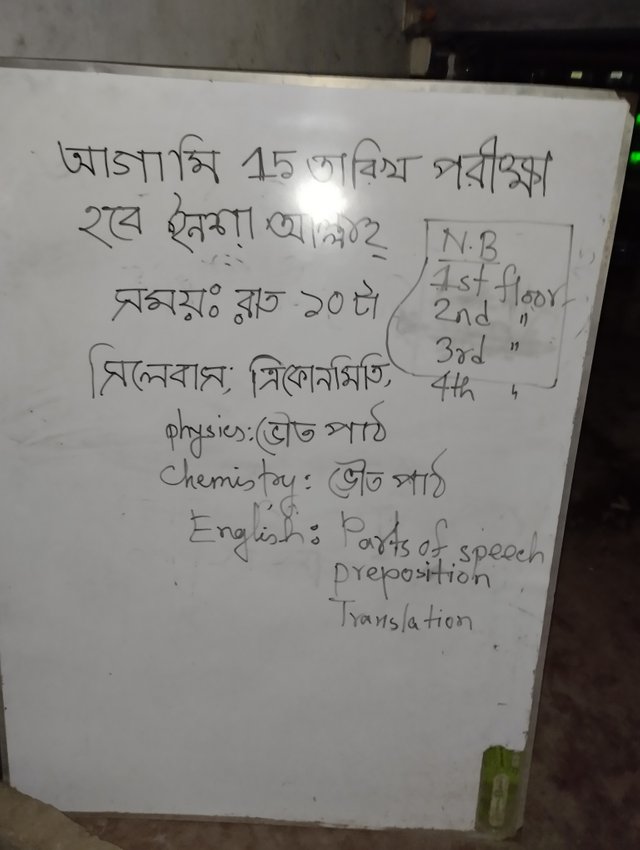 আগামি 15 তারিখ পরীক্ষা
হবে ইনশা আল্লাহ্
সময়ঃ রাত ১০ টা
সিলেবাস; ত্রিকোনমিতি,
physics: ভৌত পাঠ
chemistry: ভৌত পাঠ
English: Parts of speech
preposition
Translation
N.B
1st floor
2nd "
3rd "
4th "